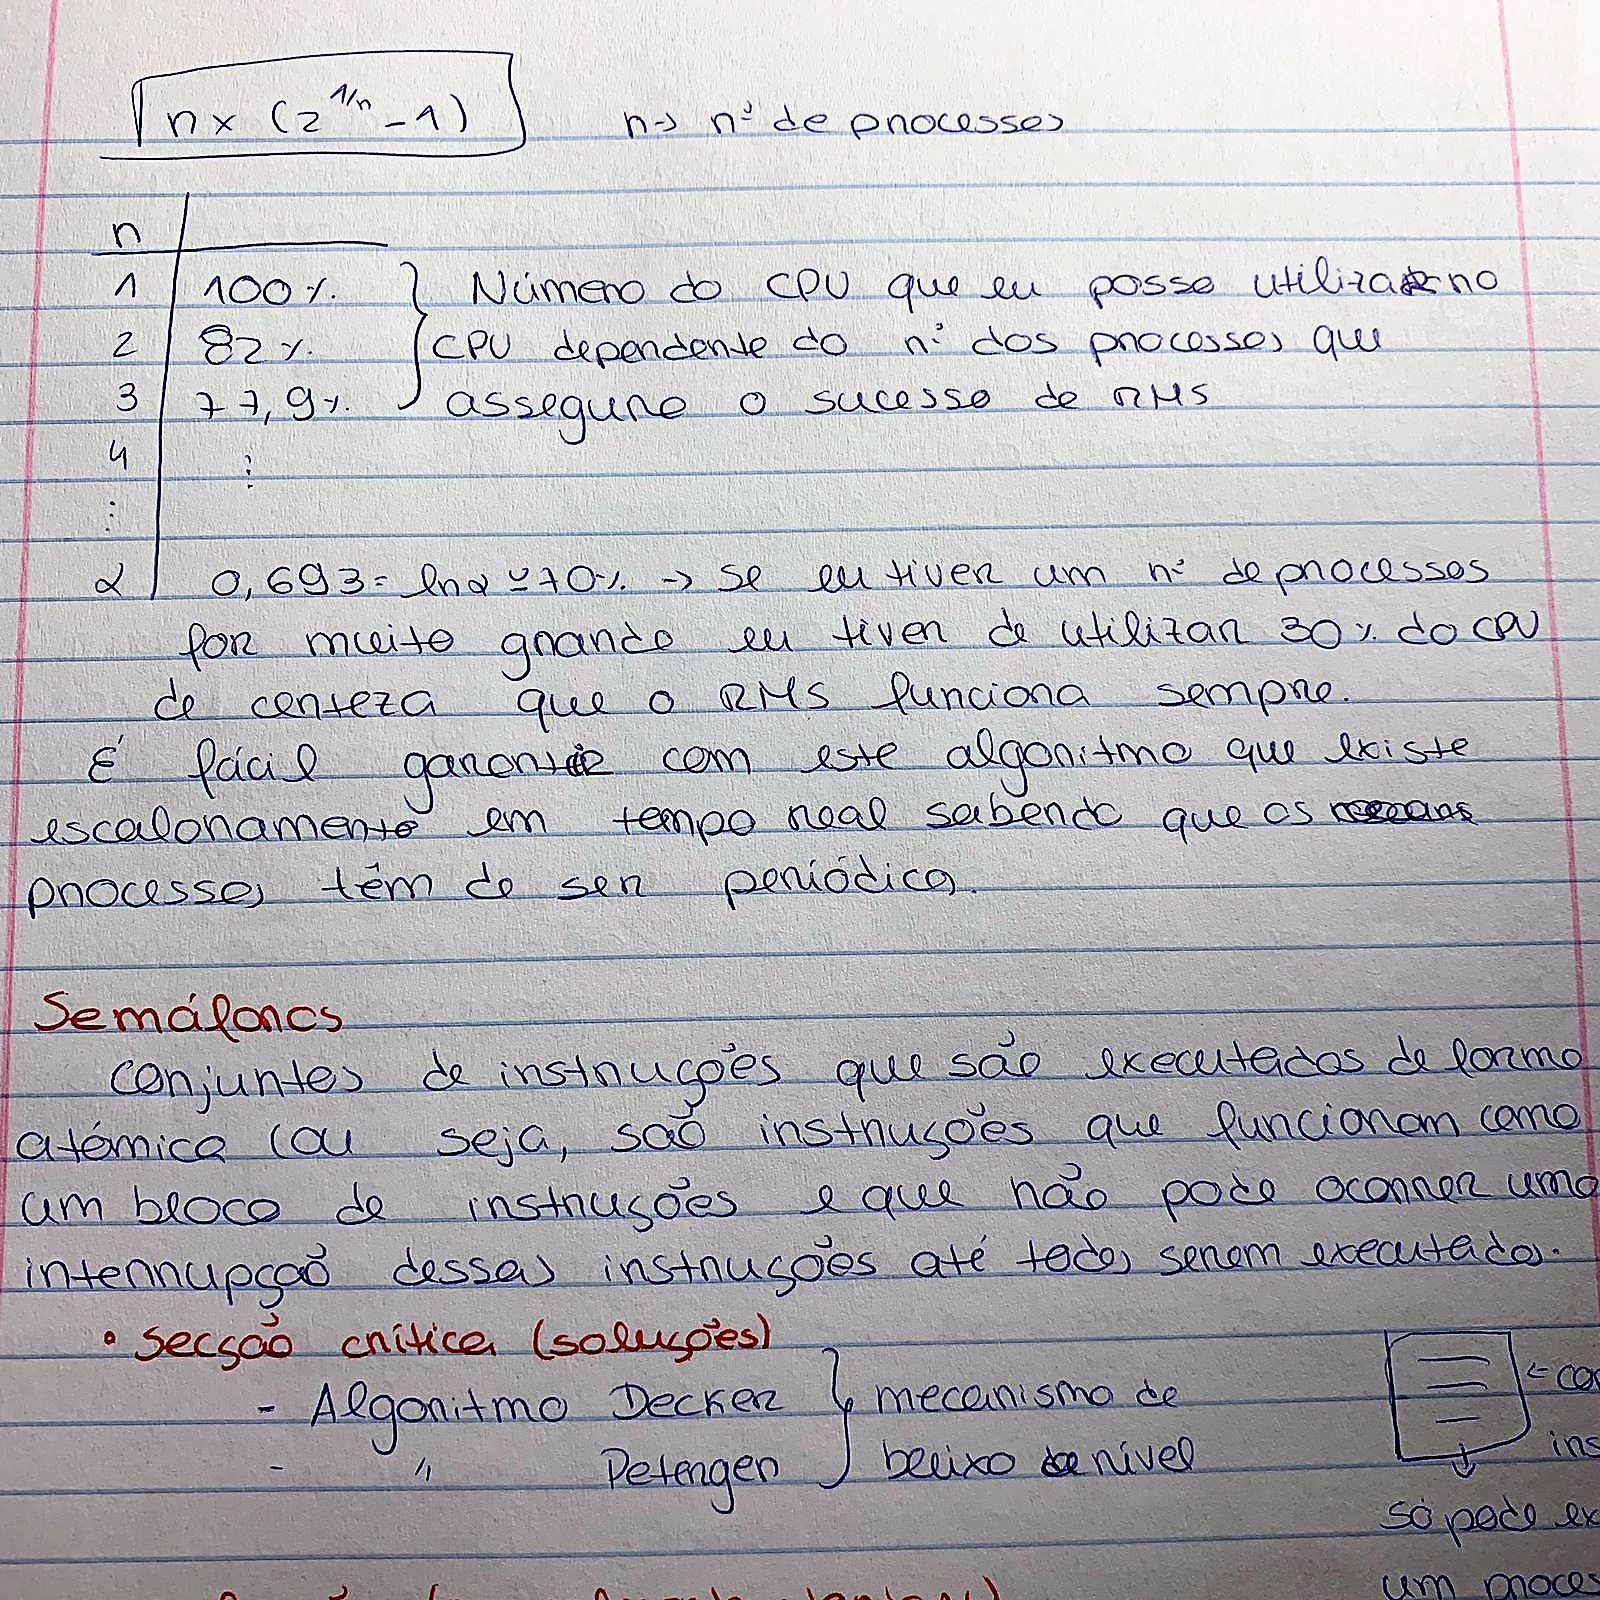 n × (2^1/n - 1) n → nº de processos
n
1 100%. Número do CPU que eu posso utilizar no
2 82%. CPU dependente do nº dos processos que
3 77,9%. assegura o sucesso de RMS
4 ⋮
⋮
α 0,693 = ln 2 ≃ 70% → se eu tiver um nº de processos
for muito grande eu tiver de utilizar 30% do CPU
de certeza que o RMS funciona sempre.
É fácil garantir com este algoritmo que existe
escalonamento em tempo real sabendo que os
processos têm de ser periódicos.
Semáforos
conjuntos de instruções que são executados de forma
atómica (ou seja, são instruções que funcionam como
um bloco de instruções e que não pode ocorrer uma
interrupção dessas instruções até todas serem executadas.
• Secção crítica (soluções)
- Algoritmo Decker mecanismo de
- " Petergen baixo de nível
só pode
um